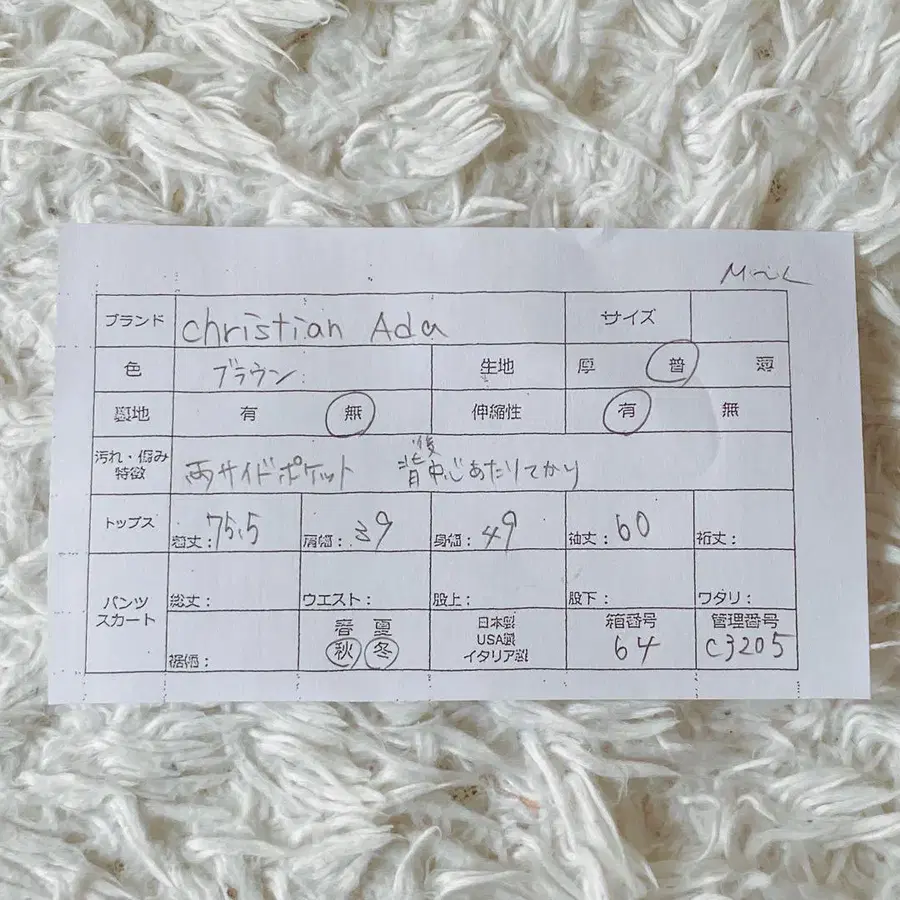 M〜L
ブランド christian Ada サイズ
色 ブラウン 生地 厚 普 薄
裏地 有 無 伸縮性 有 無
汚れ・傷み
特徴
両サイドポケット 背中心あたりてかり
後
トップス 着丈:75.5 肩幅:39 身幅:49 袖丈:60 裄丈:
パンツ
スカート
総丈: ウエスト: 股上: 股下: ワタリ:
裾幅:
春 夏
秋 冬
日本製
USA製
イタリア製
箱番号
64
管理番号
C3205